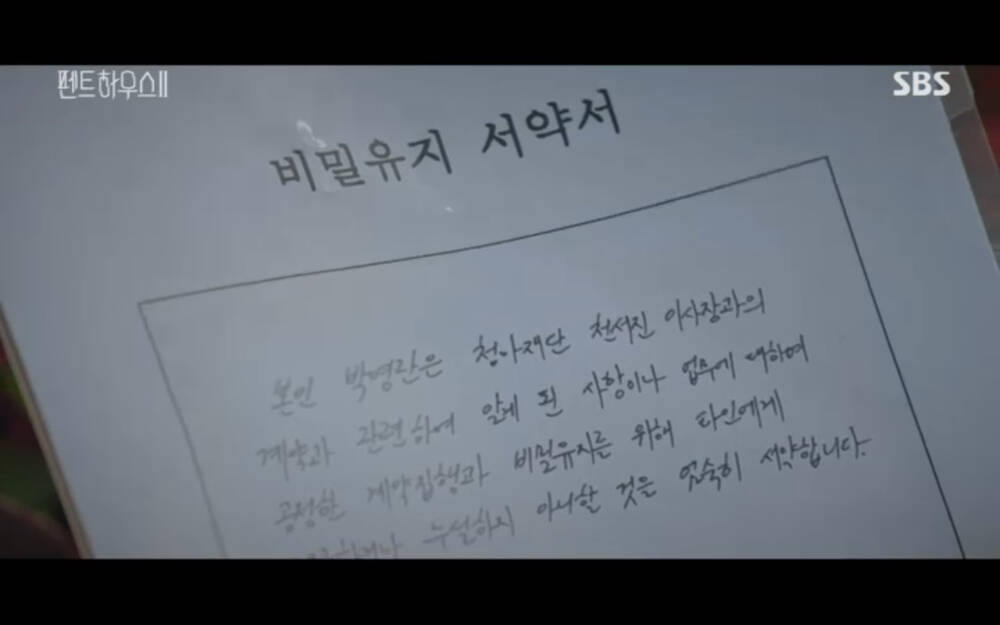 펜트하우스II
SBS
비밀유지 서약서
본인 박영란은 청아재단 천서진 이사장과의
계약과 관련하여 알게 된 사항이나 업무에 대하여
공정한 계약집행과 비밀유지를 위해 타인에게
누설하지 아니할 것을 엄숙히 서약합니다.